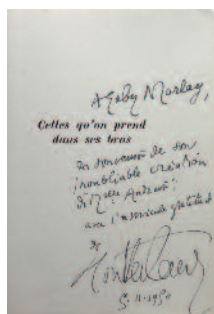 A Gaby Morlay,
Celles qu'on prend
dans ses bras
en souvenir de son
inoubliable création
de Melle Andriot !
avec l'amicale gratitude
de
Montherlant
5-11-1950